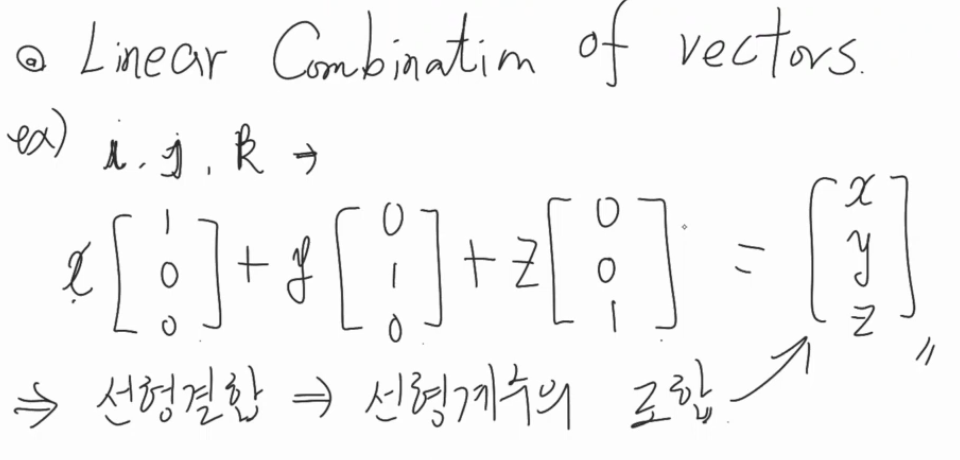 ◎ Linear Combination of vectors.
ex) i, j, k →
x [1 0 0] + y [0 1 0] + z [0 0 1] = [x y z] 〃
⇒ 선형결합 ⇒ 선형계수의 조합